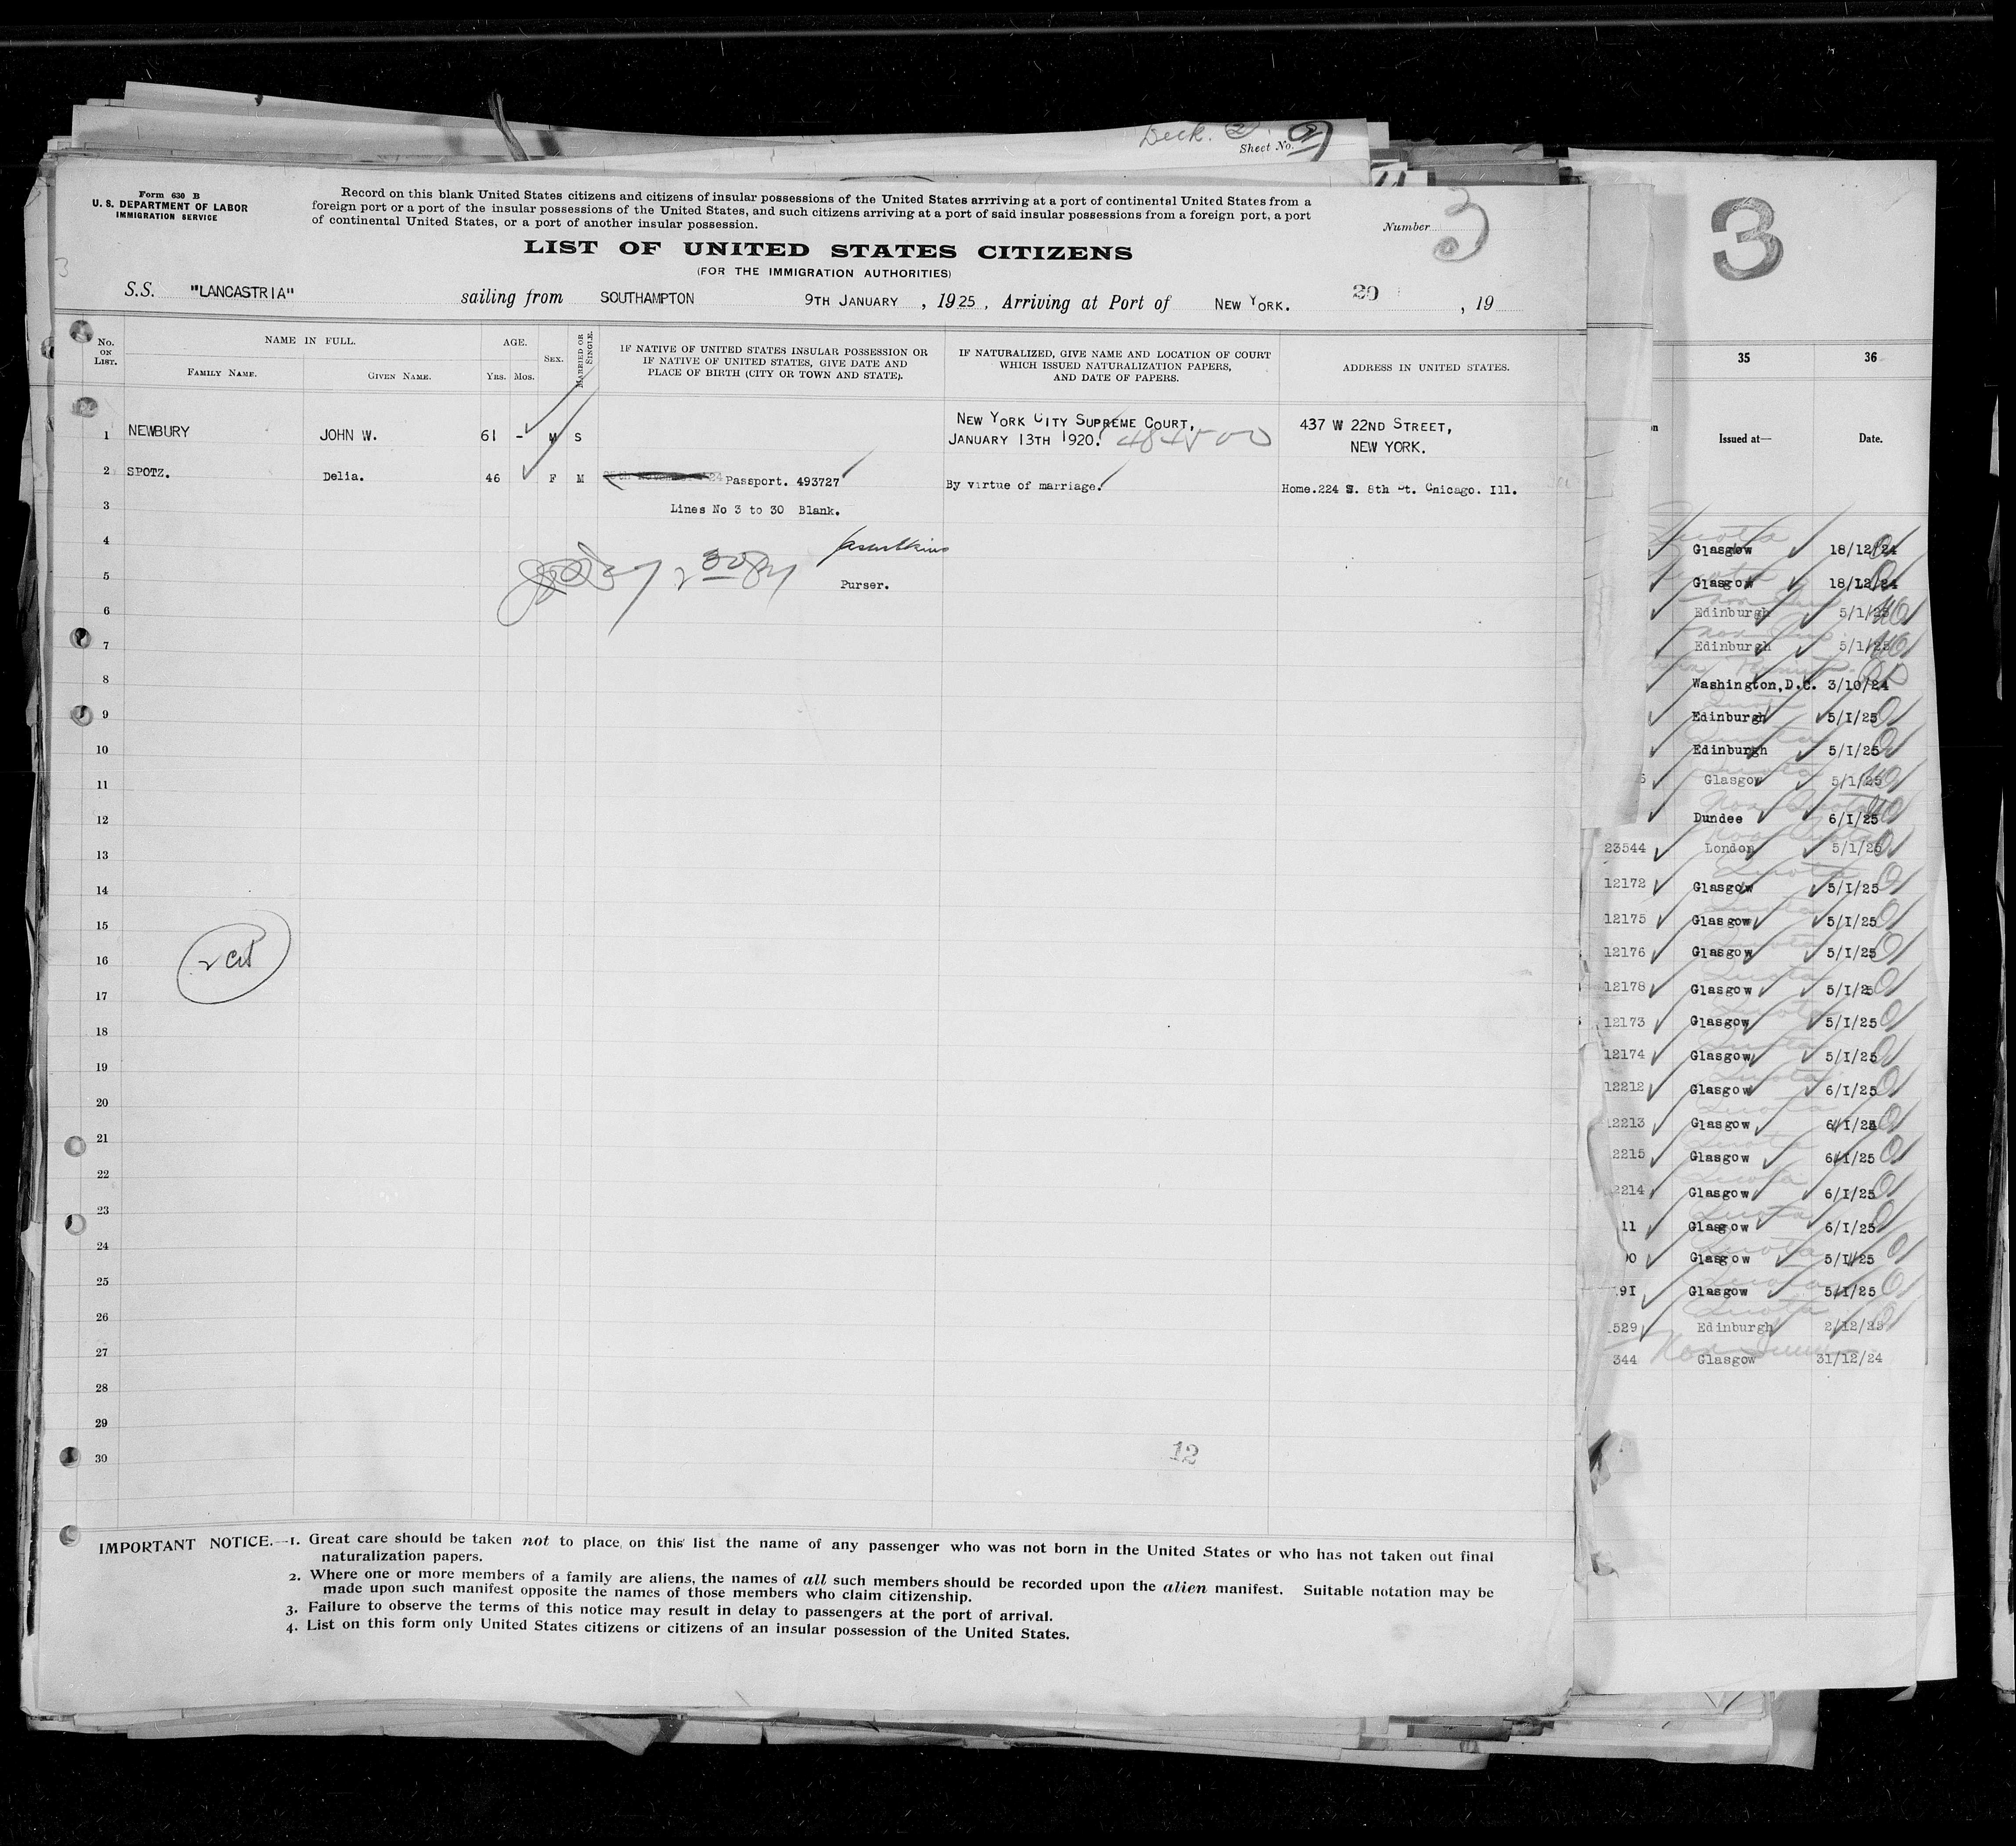 Sheet No. 2
Form 630 B
U. S. DEPARTMENT OF LABOR
IMMIGRATION SERVICE
Record on this blank United States citizens and citizens of insular possessions of the United States arrriving at a port of continental United States from a
foreign port or a port of the insular possessions of the United States, and such citizens arriving at a port of said insular possessions from a foreign port, a port
of continental United States, or a port of another insular possession.
Number 3
LIST OF UNITED STATES CITIZENS
(FOR THE IMMIGRATION AUTHORITIES)
S.S. "LANCASTRIA" sailing from SOUTHAMPTON 9TH JANUARY, 1925, Arriving at Port of NEW YORK. 20, 19
No. ON LIST.
NAME IN FULL.
FAMILY NAME. GIVEN NAME.
AGE.
YRS. MOS.
SEX.
MARRIED OR SINGLE.
IF NATIVE OF UNITED STATES INSULAR POSSESSION OR
IF NATIVE OF UNITED STATES, GIVE DATE AND
PLACE OF BIRTH (CITY OR TOWN AND STATE).
IF NATURALIZED, GIVE NAME AND LOCATION OF COURT
WHICH ISSUED NATURALIZATION PAPERS,
AND DATE OF PAPERS.
ADDRESS IN UNITED STATES.
1 NEWBURY JOHN W. 61 - M S NEW YORK CITY SUPREME COURT, 437 W 22ND STREET,
JANUARY 13TH 1920. NEW YORK.
2 SPOTZ. Delia. 46 F M Passport. 493727 By virtue of marriage. Home.224 S. 8th St. Chicago. Ill.
3 Lines No 3 to 30 Blank.
4
5 Purser.
6
7
8
9
10
11
12
13
14
15
16
17
18
19
20
21
22
23
24
25
26
27
28
29
30
12
IMPORTANT NOTICE.—1. Great care should be taken not to place on this list the name of any passenger who was not born in the United States or who has not taken out final
naturalization papers.
2. Where one or more members of a family are aliens, the names of all such members should be recorded upon the alien manifest. Suitable notation may be
made upon such manifest opposite the names of those members who claim citizenship.
3. Failure to observe the terms of this notice may result in delay to passengers at the port of arrival.
4. List on this form only United States citizens or citizens of an insular possession of the United States.
3
35 36
Issued at— Date.
Glasgow 18/12/24
Glasgow 18/12/24
Edinburgh 5/1/25
Edinburgh 5/1/25
Washington,D.C. 3/10/24
Edinburgh 5/1/25
Edinburgh 5/1/25
Glasgow 5/1/25
Dundee 6/1/25
23544 London 5/1/25
12172 Glasgow 5/1/25
12175 Glasgow 5/1/25
12176 Glasgow 5/1/25
12178 Glasgow 5/1/25
12173 Glasgow 5/1/25
12174 Glasgow 5/1/25
12212 Glasgow 6/1/25
2213 Glasgow 6/1/25
2215 Glasgow 6/1/25
2214 Glasgow 6/1/25
11 Glasgow 6/1/25
Glasgow 5/1/25
91 Glasgow 5/1/25
529 Edinburgh 2/12/25
344 Glasgow 31/12/24